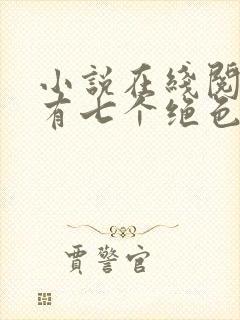 小説在綫閱
有七个绝色
賈警官